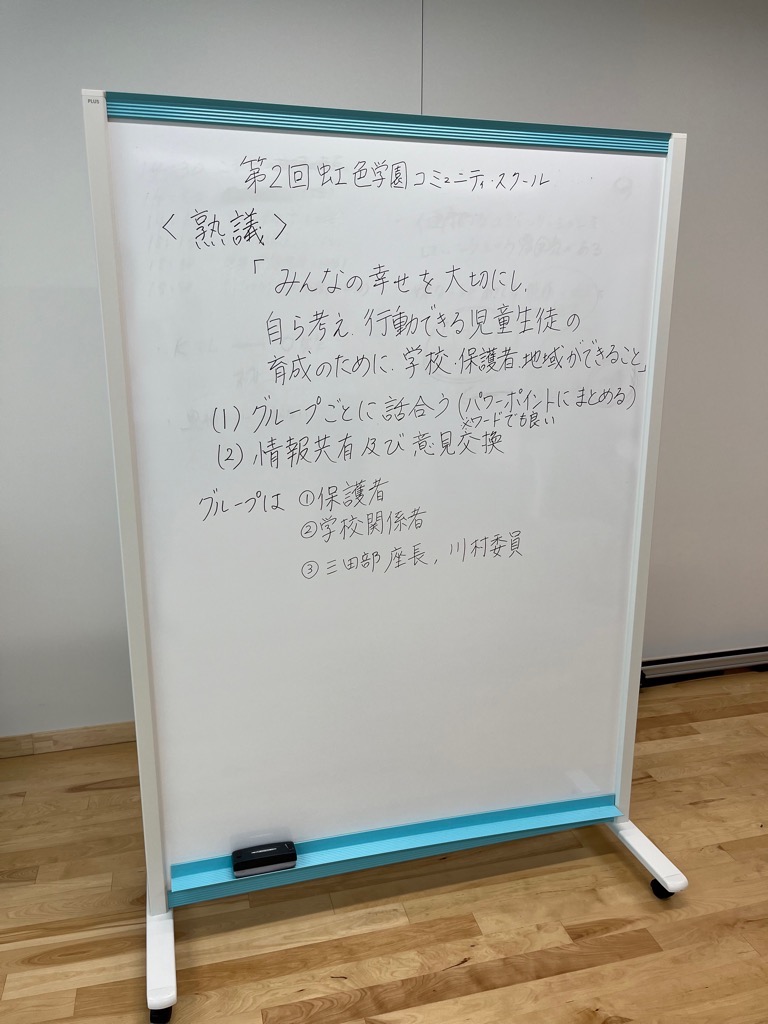 PLUS
第2回虹色学園コミュニティ・スクール
〈熟議〉
「みんなの幸せを大切にし、
自ら考え、行動できる児童生徒の
育成のために、学校・保護者・地域ができること」
(1) グループごとに話合う(パワーポイントにまとめる)
※ワードでも良い
(2) 情報共有及び意見交換
グループは ①保護者
②学校関係者
③三田部座長, 川村委員